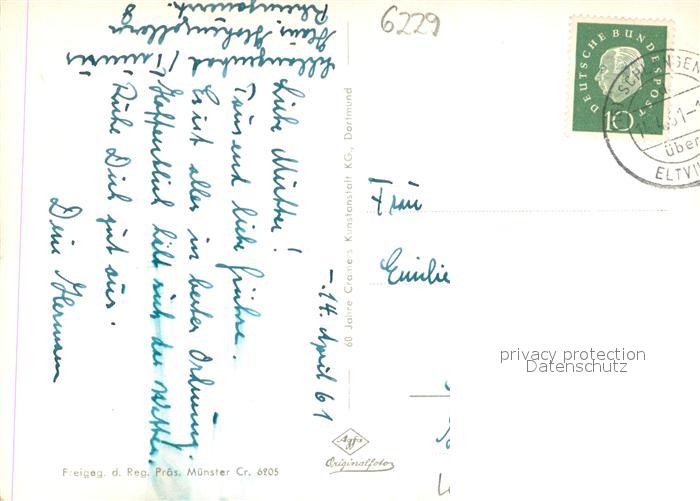 6229
Schlangenbad / Taunus
Haus Hohenzollern
- 14. April 61
Liebe Mutter!
Tausend liebe Grüße.
Es ist alles in bester Ordnung.
Hoffentlich hält sich das Wetter.
Ruhe Dich gut aus.
Dein Hermann
60 Jahre Cramers Kunstanstalt KG., Dortmund
DEUTSCHE BUNDESPOST
10
SCHLANGEN
über
ELTVIL
Frau
Emilie
privacy protection
Datenschutz
Agfa
Originalfoto
Freigeg. d. Reg. Präs. Münster Cr. 6205